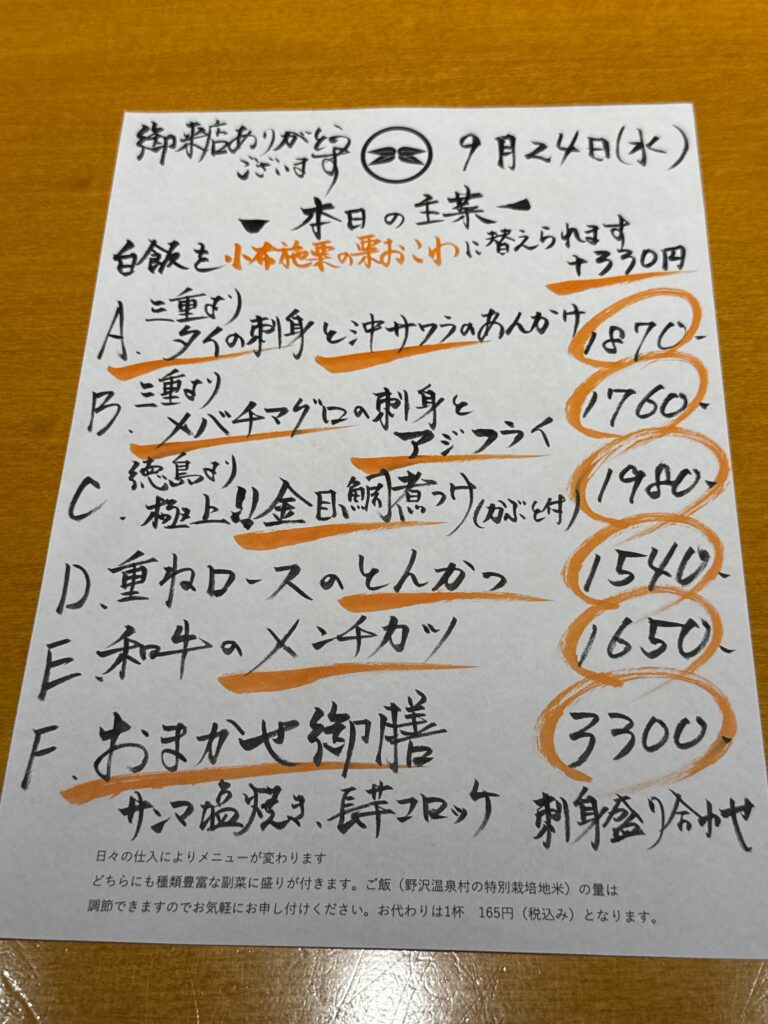 御来店ありがとう
ございます
9月24日(水)
本日の主菜
白飯を小布施栗の栗おこわに替えられます
+330円
A. 三重より
タイの刺身と沖サワラのあんかけ 1870-
B. 三重より
メバチマグロの刺身と
アジフライ 1760-
C. 徳島より
極上!!金目鯛煮つけ(かぶと付) 1980-
D. 重ねロースのとんかつ 1540-
E. 和牛のメンチカツ 1650-
F. おまかせ御膳 3300-
サンマ塩焼き、長芋コロッケ 刺身盛り合わせ
日々の仕入によりメニューが変わります
どちらにも種類豊富な副菜に盛りが付きます。ご飯（野沢温泉村の特別栽培地米）の量は
調節できますのでお気軽にお申し付けください。お代わりは1杯　165円（税込み）となります。